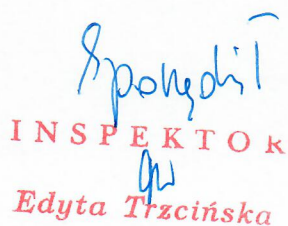 Sporządził
INSPEKTOR
Edyta Trzcińska